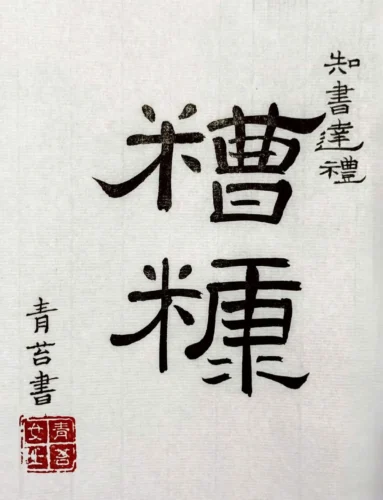 知書達禮
糟糠
青苔書
青苔
女士